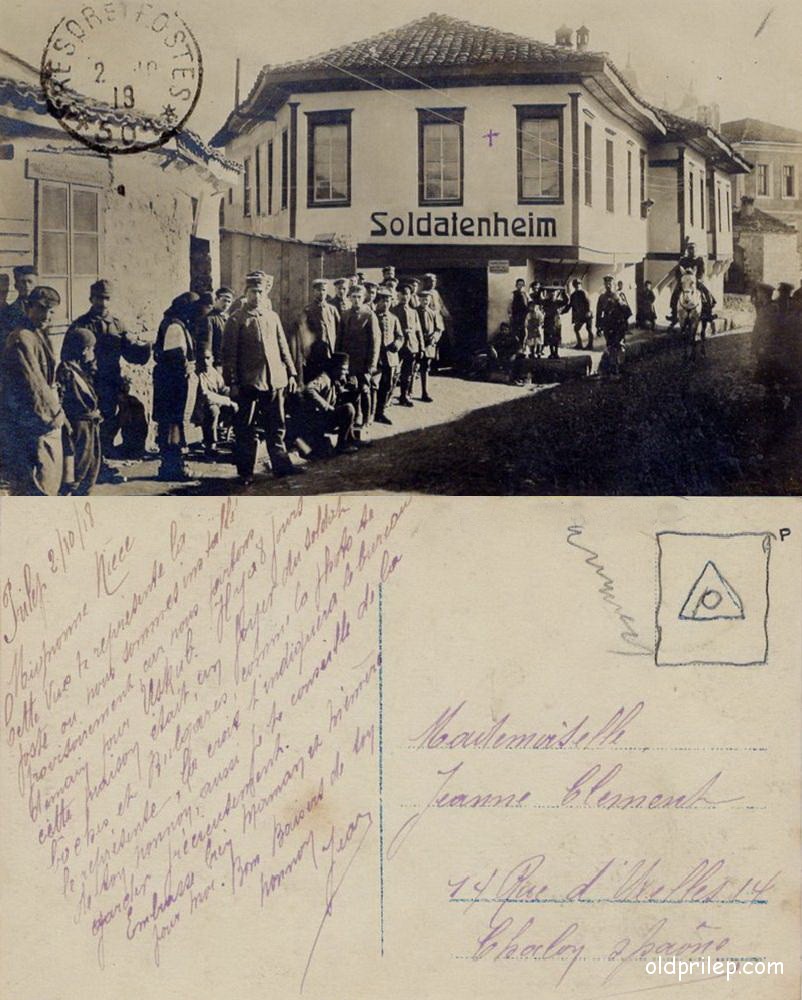 TRESORS ET POSTES
2 18
* 504 *
Soldatenheim
Prilep 2/10/18
Mignonne Niece
Cette Vue te représente la
poste ou nous sommes installé
provisoirement car nous partons
demain pour Uskub. Il y a 8 jours
cette maison était un foyer du soldat
boches et Bulgares, comme la photo te
le représente, la croix t'indiquera le bureau
de ton nonnon, aussi je te conseille de la
garder précieusement.
Embrasse bien Maman et mémère
pour moi. Bons Baisers de ton
nonnon Jean
P
Mademoiselle
Jeanne Clement
14 Rue d'Uxelles 14
Chalon s/ Saône
oldprilep.com